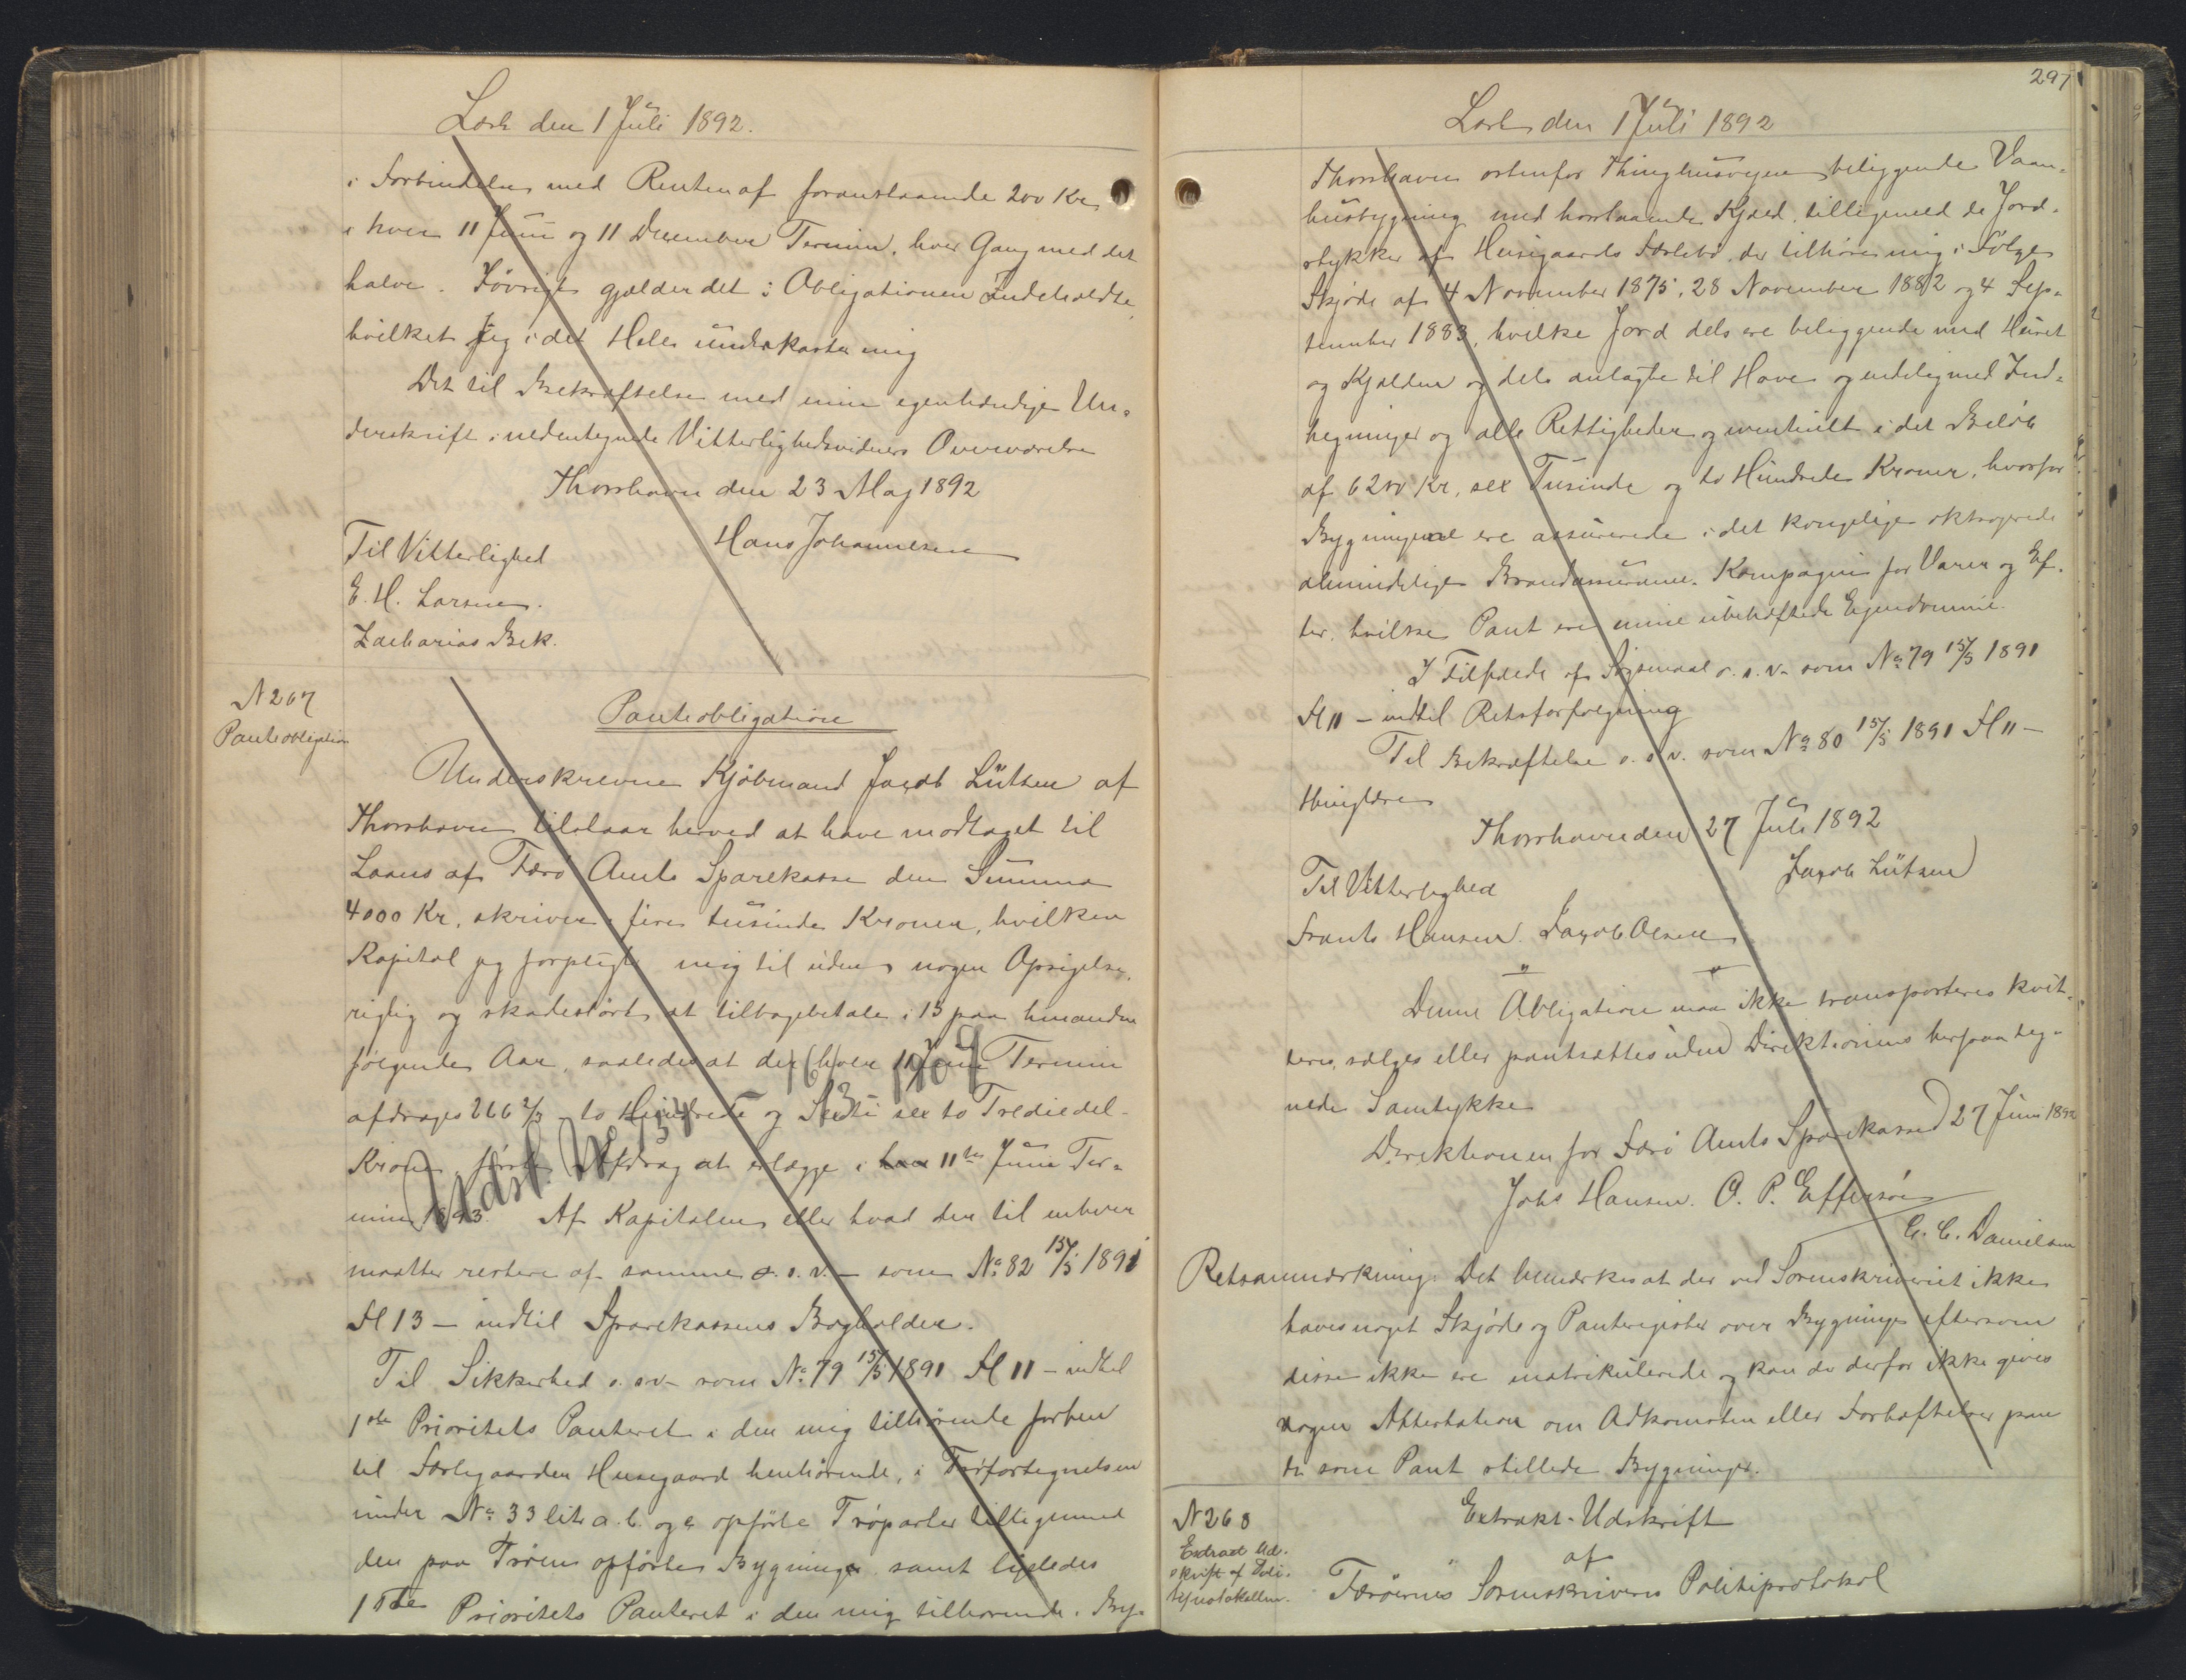 Læst den 1 Juli 1892.
i Forbindelse med Renten af foranstaaende 200 Kr.
i hver 11 Juni og 11 December Termin, hver Gang med det
halve. Iøvrigt gjælder det i Obligationen Indeholdte,
hvilket jeg i det Hele underkaster mig
Det til Bekræftelse med min egenhændige Un-
derskrift i nedentegnede Vitterlighedsvidners Overværelse
Thorshavn den 23 Maj 1892
Hans Johannesen
Til Vitterlighed
E. H. Larsen.
Zacharias Bek.
N 267
Panteobligation
Panteobligation
Underskrevne Kjøbmand Jacob Lützen af
Thorshavn tilstaar herved at have modtaget til
Laans af Færø Amts Sparekasse den Summa
4000 Kr. skriver fire tusinde Kroner, hvilken
Kapital jeg forpligter mig til uden nogen Opsigelse,
rigtig og skadesløst at tilbagebetale i 15 paa hinanden
følgende Aar, saaledes at der hver 11 Juni Termin
afdrages 266 2/3 to Hundrede og Sexti sex to Trediedel
Kroner, første Afdrag at erlægge i 11te Juni Ter-
min 1893. Af Kapitalen eller hvad der til enhver
maatte restere af samme o. s. v. — som No 82 15/5 1891
Fl 13 — indtil Sparekassens Bogholder.
Til Sikkerhed o. s. v. som No 79 15/5 1891 Fl 11 — indtil
1ste Prioritets Panteret i den mig tilhørende forhen
til Fæstegaarden Husegaard henhørende, i
under No 33 litr a. b. og c opførte Trøparter tilligemed
den paa Trøen opførte Bygninger samt ligeledes
1ste Prioritets Panteret i den mig tilhørende, By-
Udsl.
297
Læst den 1 Juli 1892
Thorshavn østenfor Thinghusvejen beliggende Vaan-
husbygning med hosstaaende Kjæld, tilligemed de Jord-
stykker af Husegaards Fæstebø, der tilhører mig i Følge
Skjøde af 4 November 1875, 28 November 1882 og 4 Sep-
tember 1883, hvilke Jord dels ere beliggende ved Huset
og Kjælden og dels anlagte til Have og endelig med Ind-
hegninger og alle Rettigheder og eventuelt i det Beløb
af 6200 Kr, sex Tusinde og to Hundrede Kroner, hvorfor
Bygningerne ere assurerede i det kongelige oktrojerede
almindelige Brandassurance-Kompagni for Varer og Ef-
ter, hvilke Pant ere mine ubehæftede Ejendomme.
I Tilfælde af Søgsmaal o. s. v. som No 79 15/5 1891
Fl 11 — indtil Retsforfølgning
Til Bekræftelse o. s. v. som No 80 15/5 1891 Fl 11 —
thinglæses
Thorshavn den 27 Juni 1892
Jacob Lützen
Til Vitterlighed
Frants Hansen. Jacob Olsen
Denne Obligation maa ikke transporteres kvit-
teres, sælges eller pantsættes uden Direktionens herpaa teg-
nede Samtykke
Direktionen for Færø Amts Sparekasse 27 Juni 1892
Johs Hansen. O. P. Effersøe
C. C. Danielsen
Retsanmærkning: Det bemærkes at der ved Sorenskriveriet ikke
haves noget Skjøde og Panteregister over Bygninger eftersom
disse ikke ere matrikulerede og kan de derfor ikke gives
nogen Attestation om Adkomsten eller Forhæftelser paa
de som Pant stillede Bygninger.
N 268
Extract Ud-
skrift af Poli-
tiprotokollen.
Extrakt-Udskrift
af
Færøernes Sorenskriveris Politiprotokol